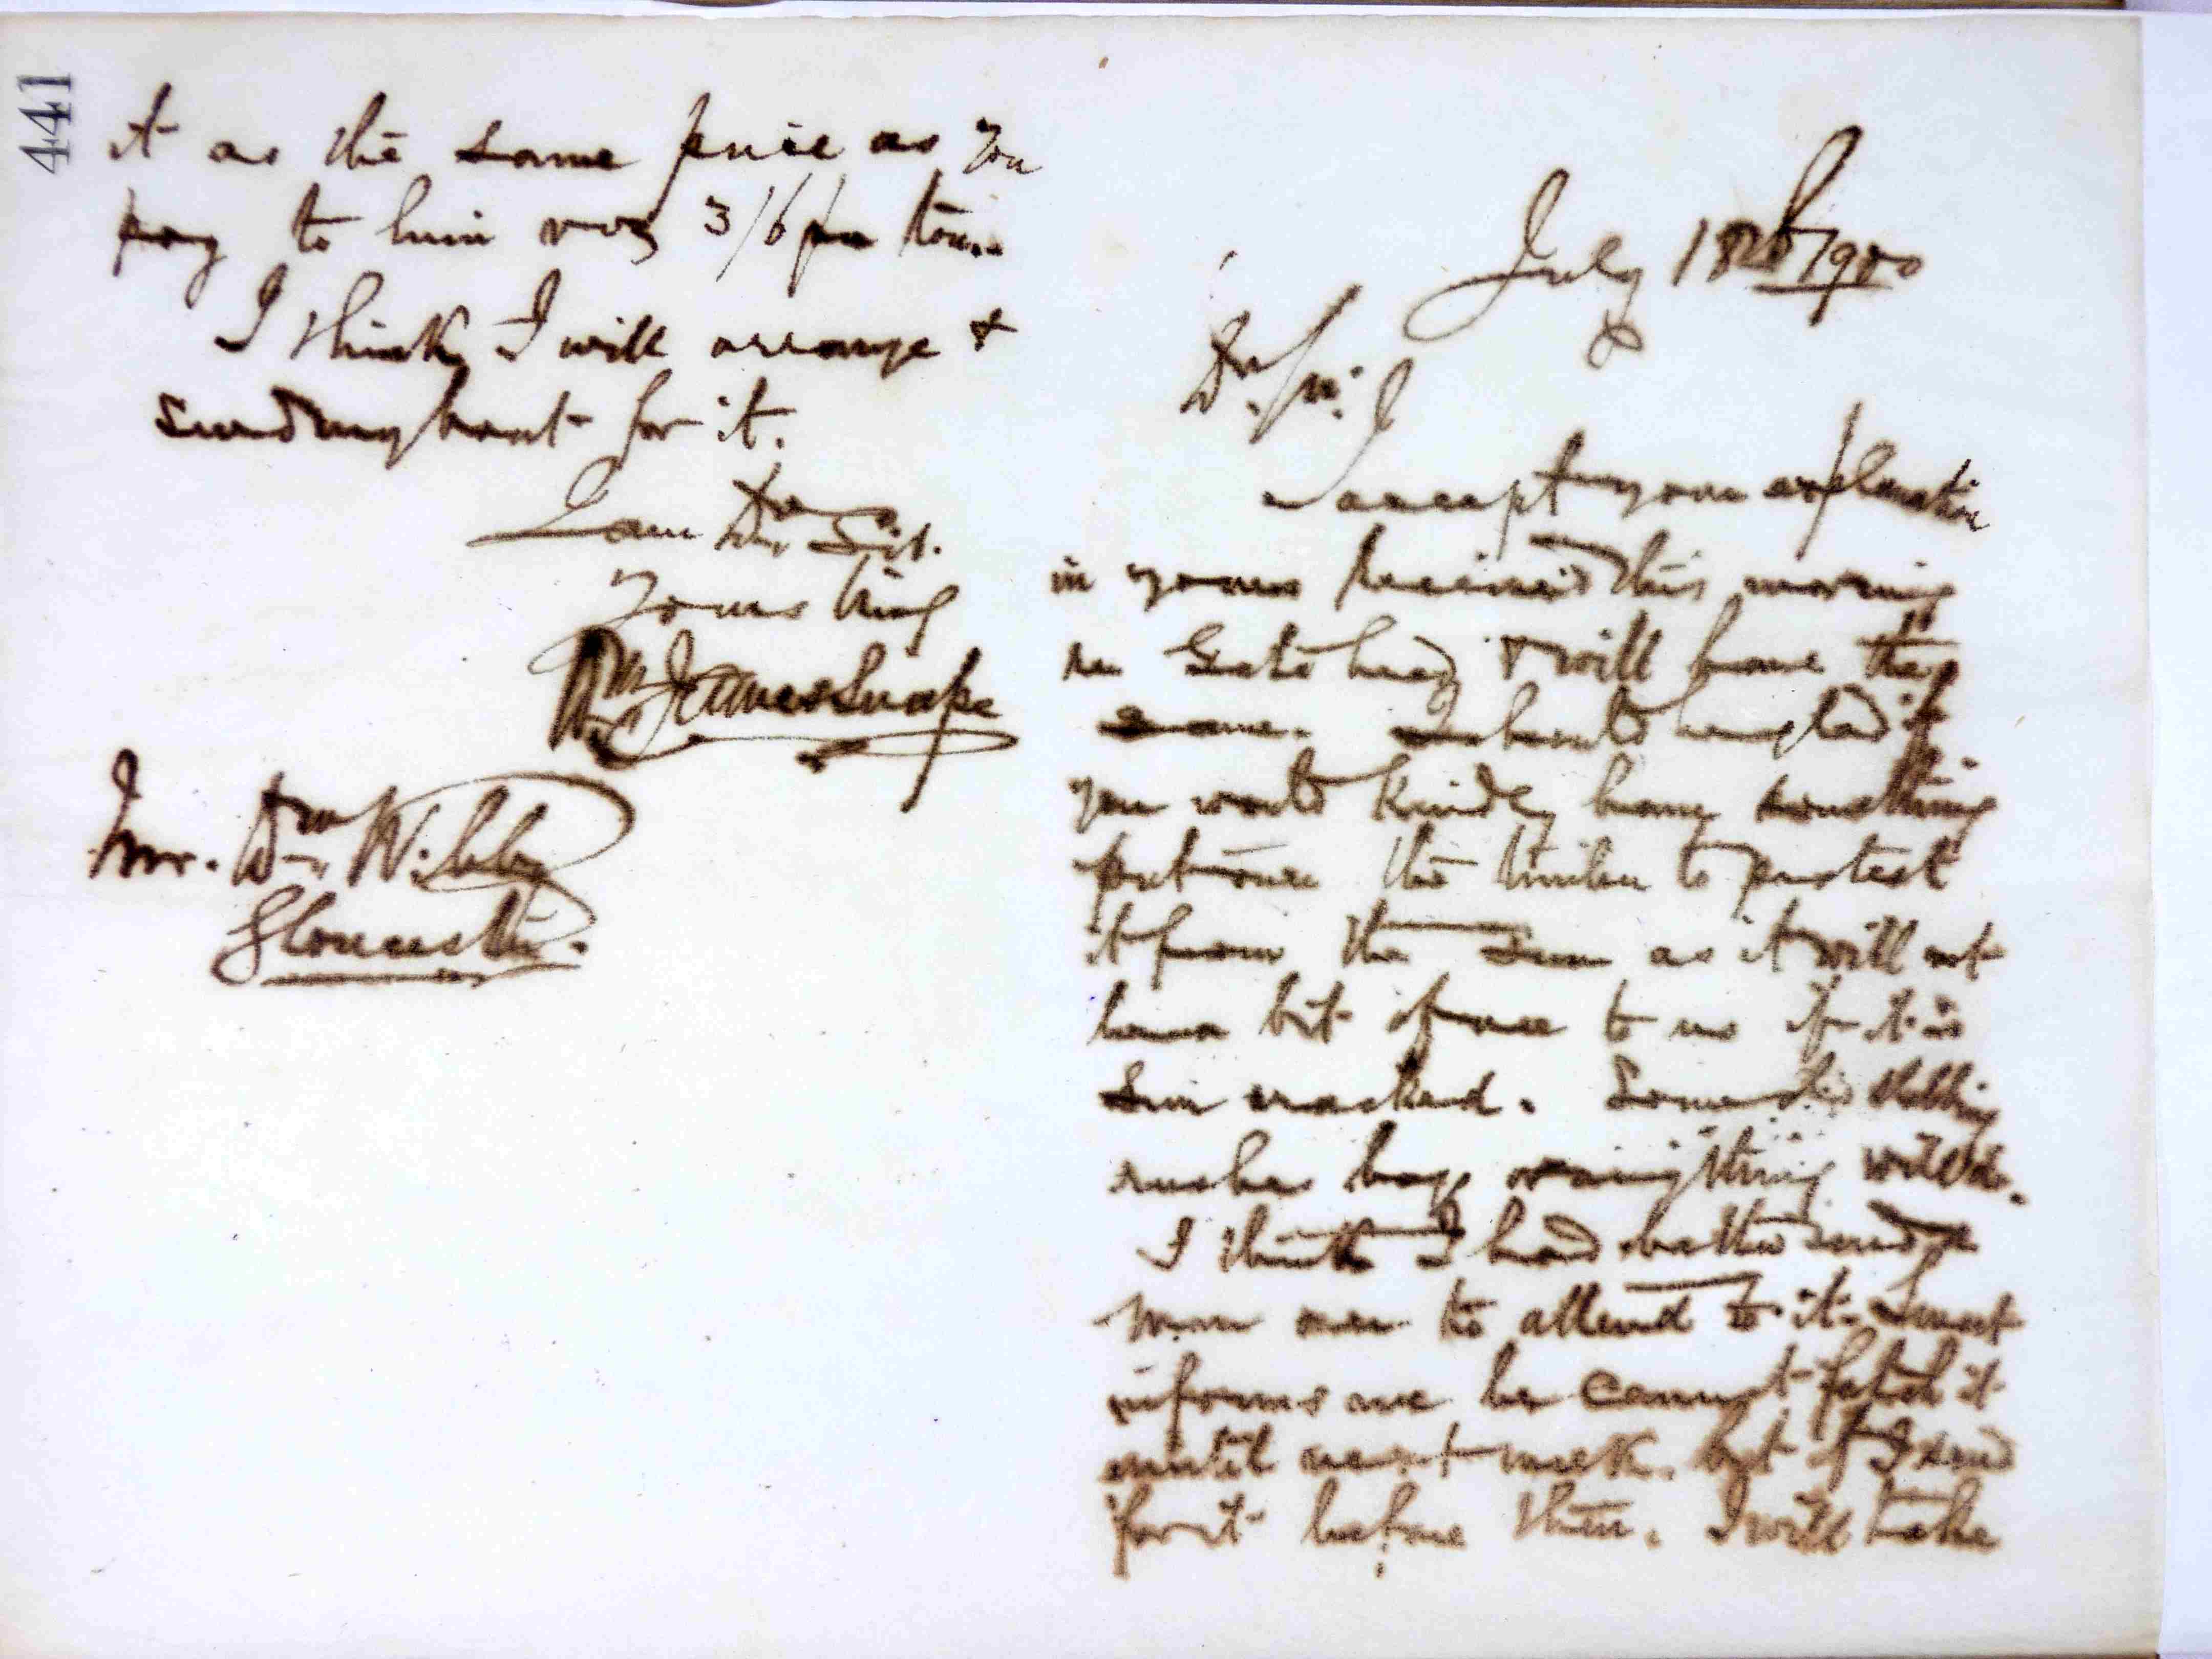 July 18th 1900
Dr Sir.
I accept your explanation
in yours received this morning
re Gate head & will have the
same. I should be glad if
you would kindly have something
put over the timber to protect
it from the sun as it will not
be a bit of use to us if it is
Sun cracked. Some
rushes bags or anything will do.
I think I had better send a
man over to attend to it.
informs me he cannot fetch it
until next week. but if I send
for it before then. I will take
441
it as the same price as you
pay to him viz 3/6 per ton.
I think I will arrange &
send my boat for it.
I am Dr Sir.
Yours truly
Wm James Snape
Mr. Wm Wibby
Gloucester.